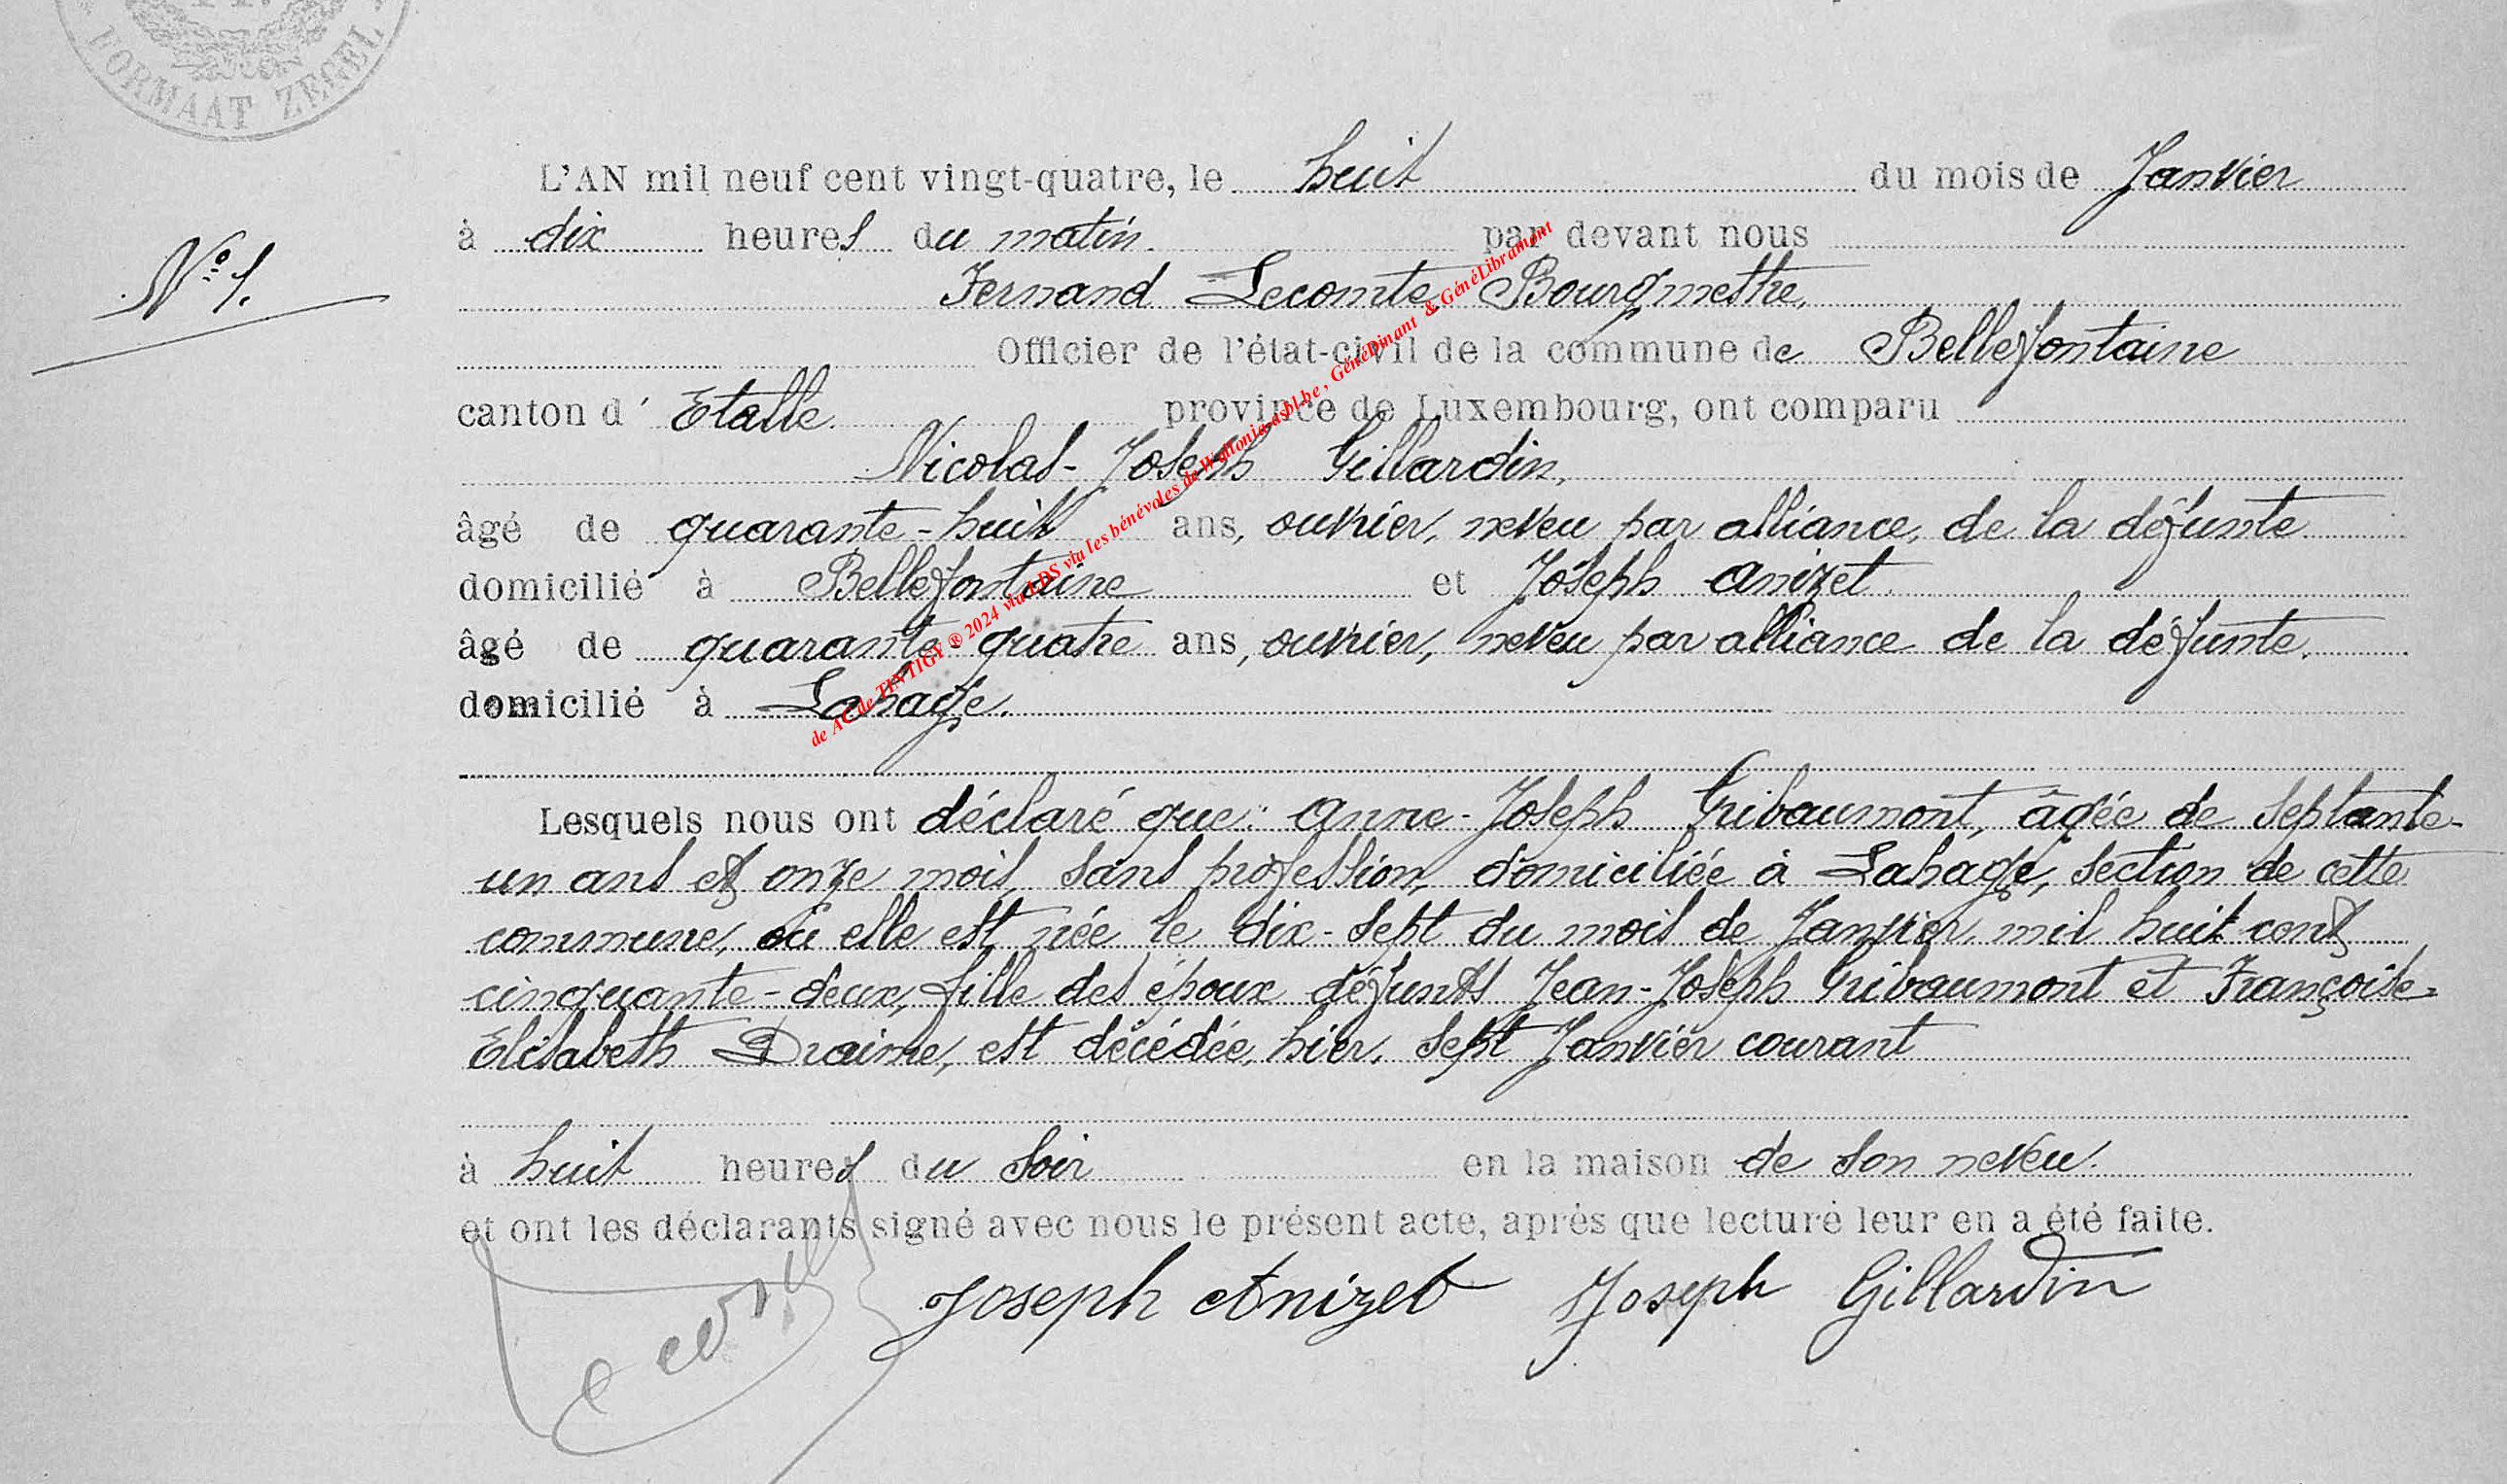 FORMAAT ZEGEL
L'AN mil neuf cent vingt-quatre, le huit du mois de Janvier
à dix heures du matin. par devant nous
Nº 1.
Fernand Lecomte, Bourgmestre,
Officier de l'état-civil de la commune de Bellefontaine
canton d' Etalle. province de Luxembourg, ont comparu
Nicolas-Joseph Gillardin,
âgé de quarante-huit ans, ouvrier, neveu par alliance, de la défunte
domicilié à Bellefontaine et Joseph Anizet.
âgé de quarante-quatre ans, ouvrier, neveu par alliance de la défunte.
domicilié à Lahage.
de AC de TINTIGY ® 2024 via LDS via les bénévoles de Wallonia-asbl.be, GénéDinant & GénéLibramont
Lesquels nous ont déclaré que: Anne-Joseph Gribaumont, âgée de septante-
un ans et onze mois, sans profession, domiciliée à Lahage, section de cette
commune, où elle est née le dix-sept du mois de Janvier, mil huit cent
cinquante-deux, fille des époux défunts Jean-Joseph Gribaumont et Françoise-
Elisabeth Draime, est décédée, hier, sept Janvier courant
à huit heures du soir en la maison de son neveu.
et ont les déclarants signé avec nous le présent acte, après que lecture leur en a été faite.
Joseph Anizet Joseph Gillardin